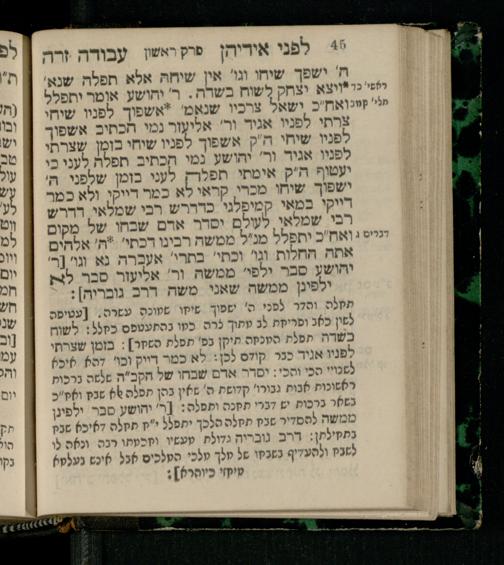 45 לפני אידיהן פרק ראשון עבודה זרה
ה׳ ישפך שיחו וגו׳ אין שיחה אלא תפלה שנא׳
ראשי׳ כד *ויצא יצחק לשוח בשדה. ר׳ יהושע אומר יתפלל
תלי׳ קמב ואח״כ ישאל צרכיו שנאמ׳ *אשפוך לפניו שיחי
צרתי לפניו אגיד ור׳ אליעזר נמי הכתיב אשפוך
לפניו שיחי ה״ק אשפוך לפניו שיחי בזמן שצרתי
לפניו אגיד ור׳ יהושע נמי הכתיב תפלה לעני כי
יעטוף ה״ק אימתי תפלה לעני בזמן שלפני ה׳
ישפוך שיחו מכדי קראי לא כמר דייקי ולא כמר
דייקי במאי קמיפלגי כדדרש רבי שמלאי דדרש
רבי שמלאי לעולם יסדר אדם שבחו של מקום
דברים ג ואח״כ יתפלל מנ״ל ממשה רבינו דכתי׳ *ה׳ אלהים
אתה החלות וגו׳ וכתי׳ בתרי׳ אעברה נא וגו׳ [ר׳
יהושע סבר ילפי׳ ממשה ור׳ אליעזר סבר לא
ילפינן ממשה שאני משה דרב גובריה]:
תפלה והדר לפני ה׳ ישפוך שיחו שמונה עשרה. [עטיפה
לשון כאב ופריקת לב עתוך צרה כמו בהתעטפם כחלל: לשוח
בשדה תפלת המנחה תיקן בפ׳ תפלת השחר]: בזמן שצרתי
לפניו אגיד כבר קודם לכן: לא כמר דייק וכו׳ דהא איכא
לשנויי הכי והכי: יסדר אדם שבחו של הקב״ה שלשה ברכות
ראשונות אבות גבורו׳ קדושת ה׳ שאין בהן תפלה אלא שבח ואח״כ
בשאר ברכות יש דברי תחנה ותפלה: [ר׳ יהושע סבר ילפינן
ממשה להסדיר שבח תפלה הלכך יתפלל י״ח תפלה דאיכא שבח
בתחילתן: דרב גובריה גדולת מעשיו וחכמתו רבה ונאה לו
לשבח ולהעדיף בשבחו של מלך מלכי המלכים אבל אינש בעלמא
מיחזי כיוהרא]: